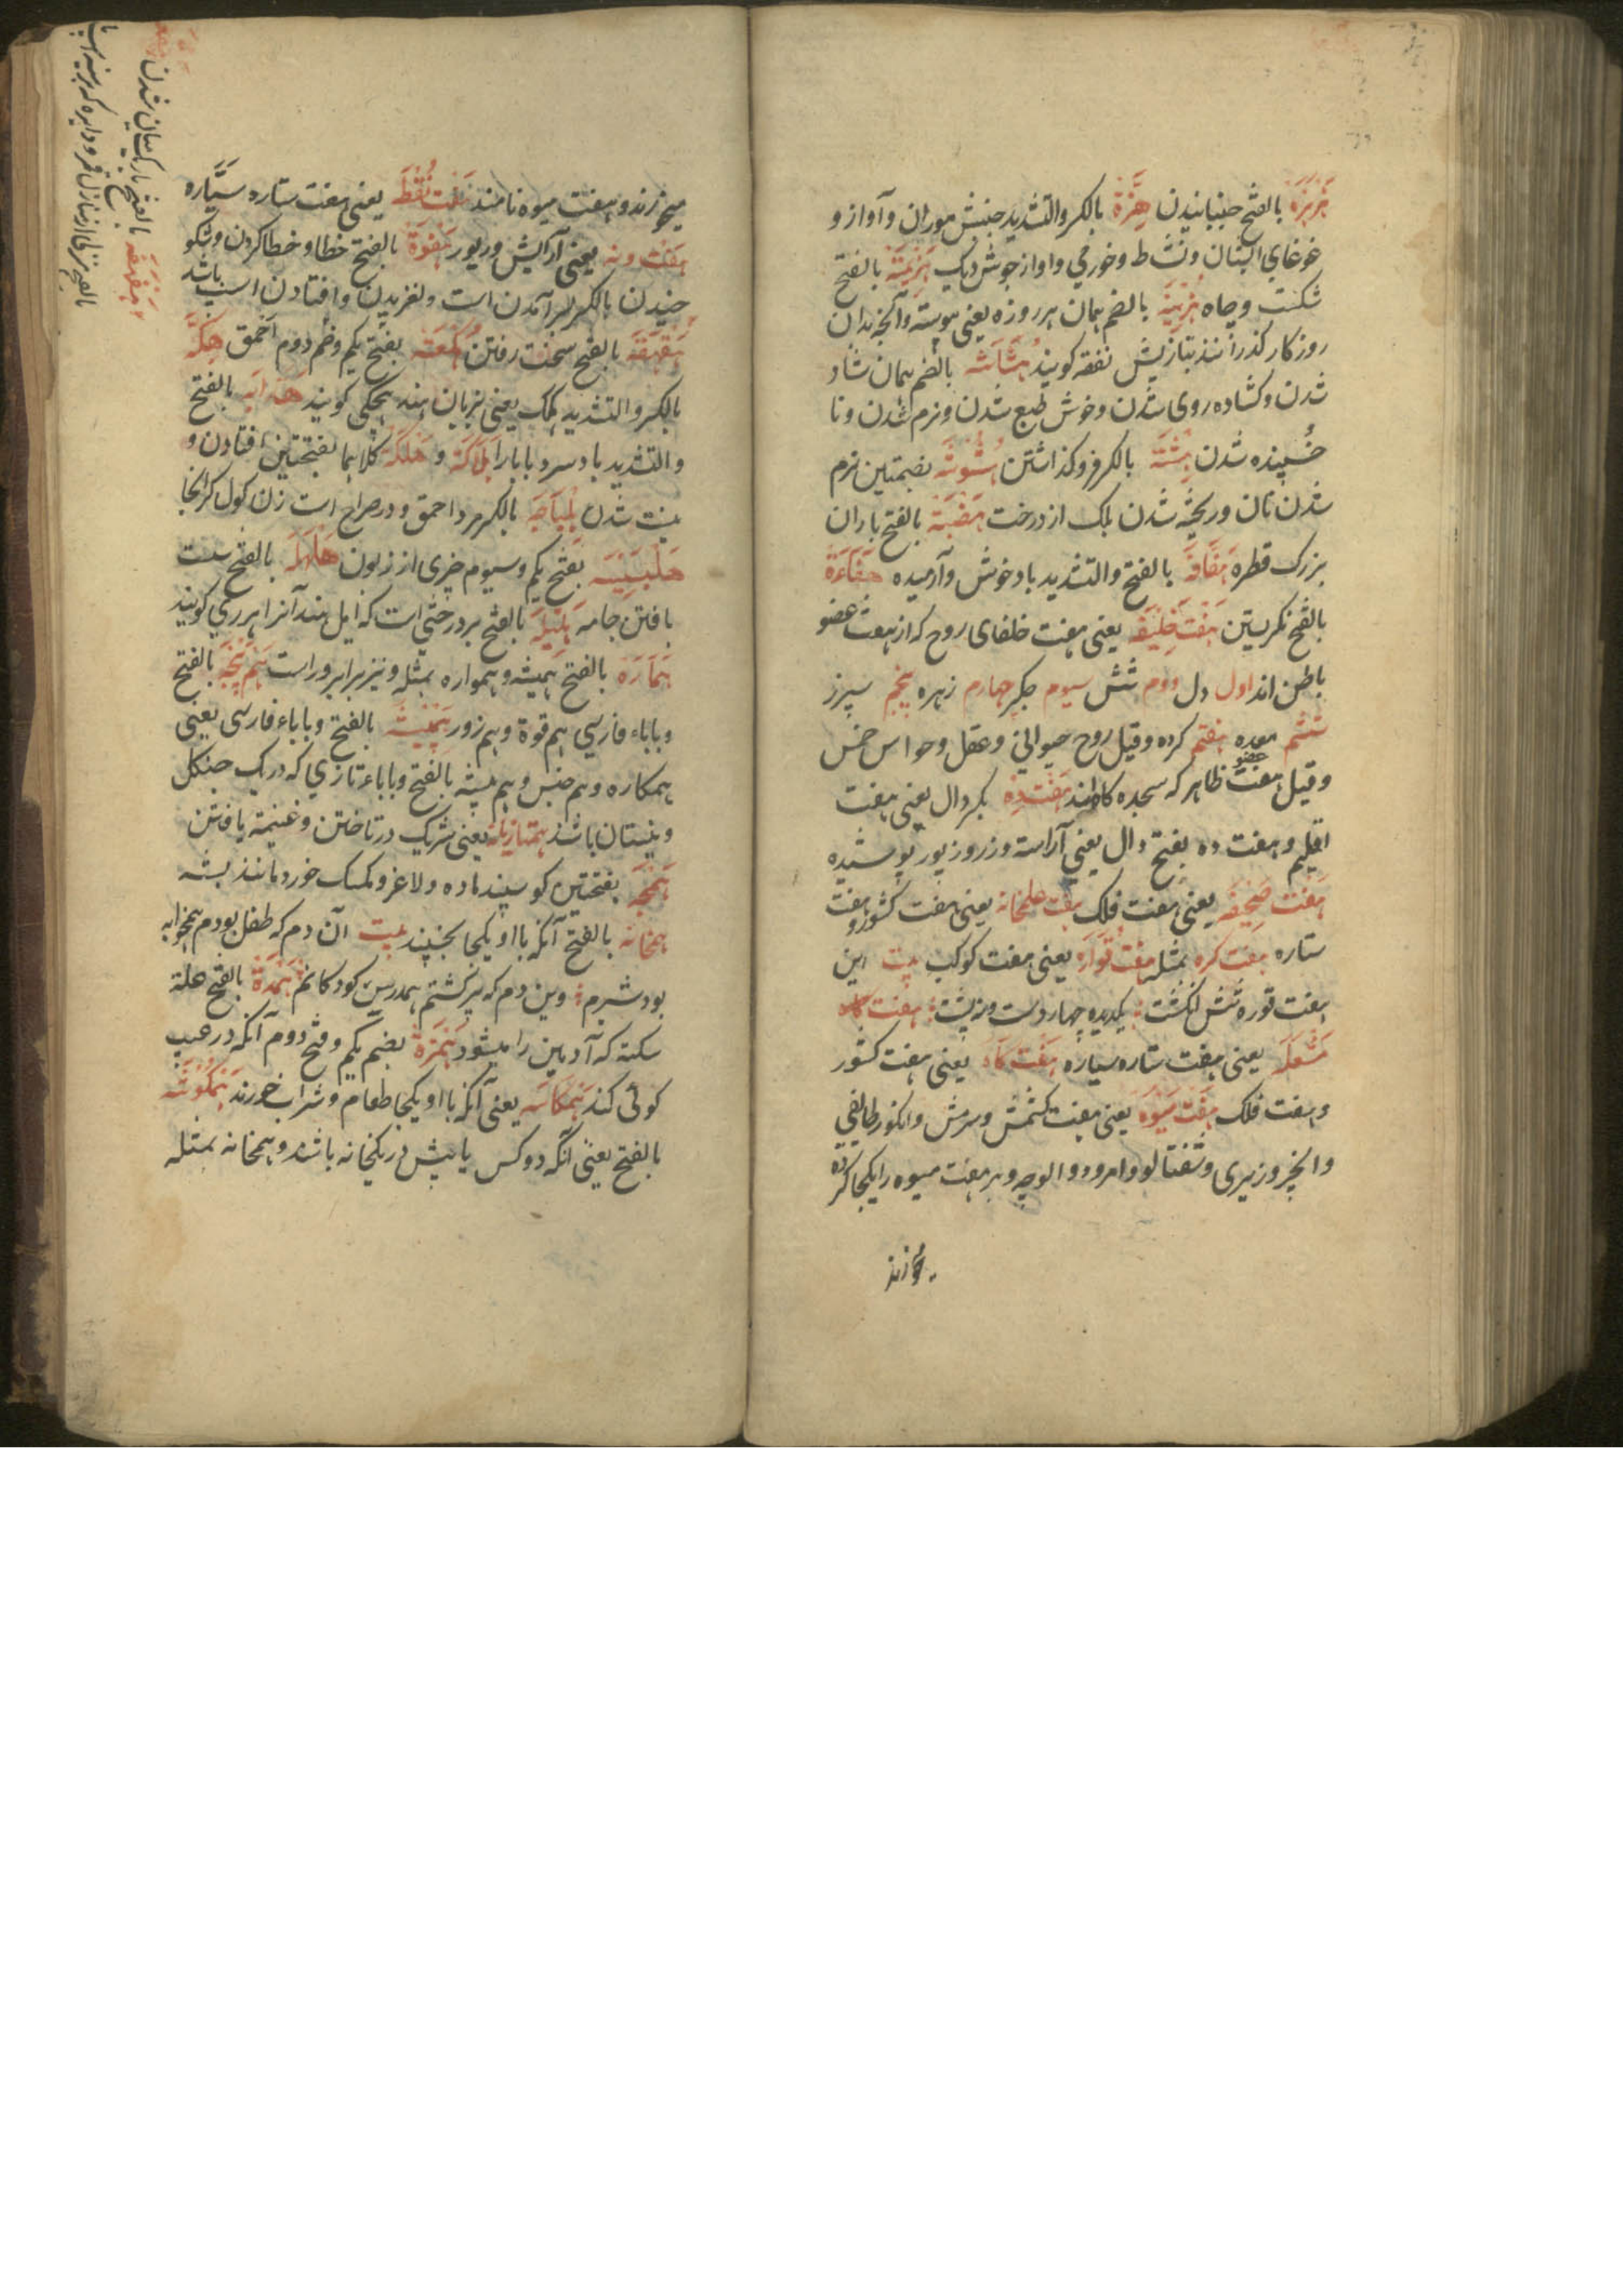 هزهزة بالفتح جنبانیدن هزة بالکسر والتشدید جنبش موران و آواز و
غوغای ایشان و نشاط و خورمی و اواز جوش دیک هزیمة بالفتح
شکست و چاه هزینه بالضم همان هر روزه یعنی پیوسته و آنچه بدان
روزکار کذرانند بتازیش نفقه کویند هشاشه بالضم همان شاد
شدن و کشاده روی شدن و خوش طبع شدن و نرم شدن و نا
خسپنده شدن هشته بالکسر فرو کذاشتن هشوشه بضمتین نرم
شدن نان و ریخته شدن بلک از درخت هضبة بالفتح باران
بزرک قطره هفافة بالفتح والتشدید باد خوش و آرمیده
بالفتح نکریستن هفت خلیفه یعنی هفت خلفای روح که از هفت عضو
باطن اند اول دل دوم شش سیوم جکر چهارم زهره پنجم سپرز
ششم معده هفتم کرده وقیل روح حیوانی و عقل و حواس خمس
وقیل هفت عضو ظاهر که سجده کاه اند هفت ده بکسر دال یعنی هفت
اقلیم و هفت ده بفتح دال یعنی آراسته و زر و زیور پوشیده
هفت صحیفه یعنی هفت فلک هفت علمخانه یعنی هفت کشور و هفت
ستاره هفت کره بمثله هفت قواره یعنی هفت کوکب بیت این
هفت قوره شش انکشت یکدیده چهار دست و نه پشت هفت
مشعله یعنی هفت ستاره سیاره هفت کاه یعنی هفت کشور
و هفت فلک هفت میوه یعنی هفت کشمش و سرمش و انکور طایفی
و انجیر وزیری و شفتالو و امرود و الوچه و هر هفت میوه را یکجا کرده
میخورند
میخورند و هفت میوه نامند هفت نقطه یعنی هفت ستاره سیاره
هفت و نه یعنی آرایش و زیور هفوة بالفتح خطا و خطا کردن و شکو
خیدن بالکسر بسر آمدن است و لغزیدن و افتادن اسپ باشد
هقهقه بالفتح سخت رفتن هکعه بفتح یکم و ضم دوم احمق هکه
بالکسر والتشدید هکک یعنی بزبان هند هچکی کویند بالفتح
والتشدید باد سرد با باران هلاکة و هلکة کلاهما بفتحتین افتادن و
نیست شدن هلباجه بالکسر مرد احمق و در صراح است زن کول کرانجا
هلبسیسه بفتح یکم و سیوم چیزی از زبون هلهله بالفتح سست
بافتن جامه هلیله بالفتح بر درختی است که اهل هند آنرا هرری کویند
همارة بالفتح همیشه و همواره بمثله و نیز برابر و راست هم پنجه بالفتح
و باباء فارسی هم قوة و هم زور هم پیشه بالفتح و باباء فارسی یعنی
همکاره و هم جنس و هم پیشه بالفتح و باباء تازی که در یک جنکل
و نیستان باشند همتازیانه یعنی شریک در تاختن و غنیمة یافتن
همجه بفتحتین کوسپند ماده و لاغر و مکسک خورد مانند پشه
همخابه بالفتح آنکه با او یکجا بخسپند بیت آن دم که طفل بودم همخوابه
بود شیرم وین دم که پیر کشتم همدرس کودکانم همدة بالفتح علة
سکته که آدمین را میشود همزة بضم یکم و فتح دوم آنکه در عیب
کوئی کند همکاسه یعنی آنکه با او یکجا طعام و شراب خورند همکوشه
بالفتح یعنی آنکه دو کس یا بیش در یکخانه باشند و همخانه بمثله
هفهفه بالفتح باریک میان شدن